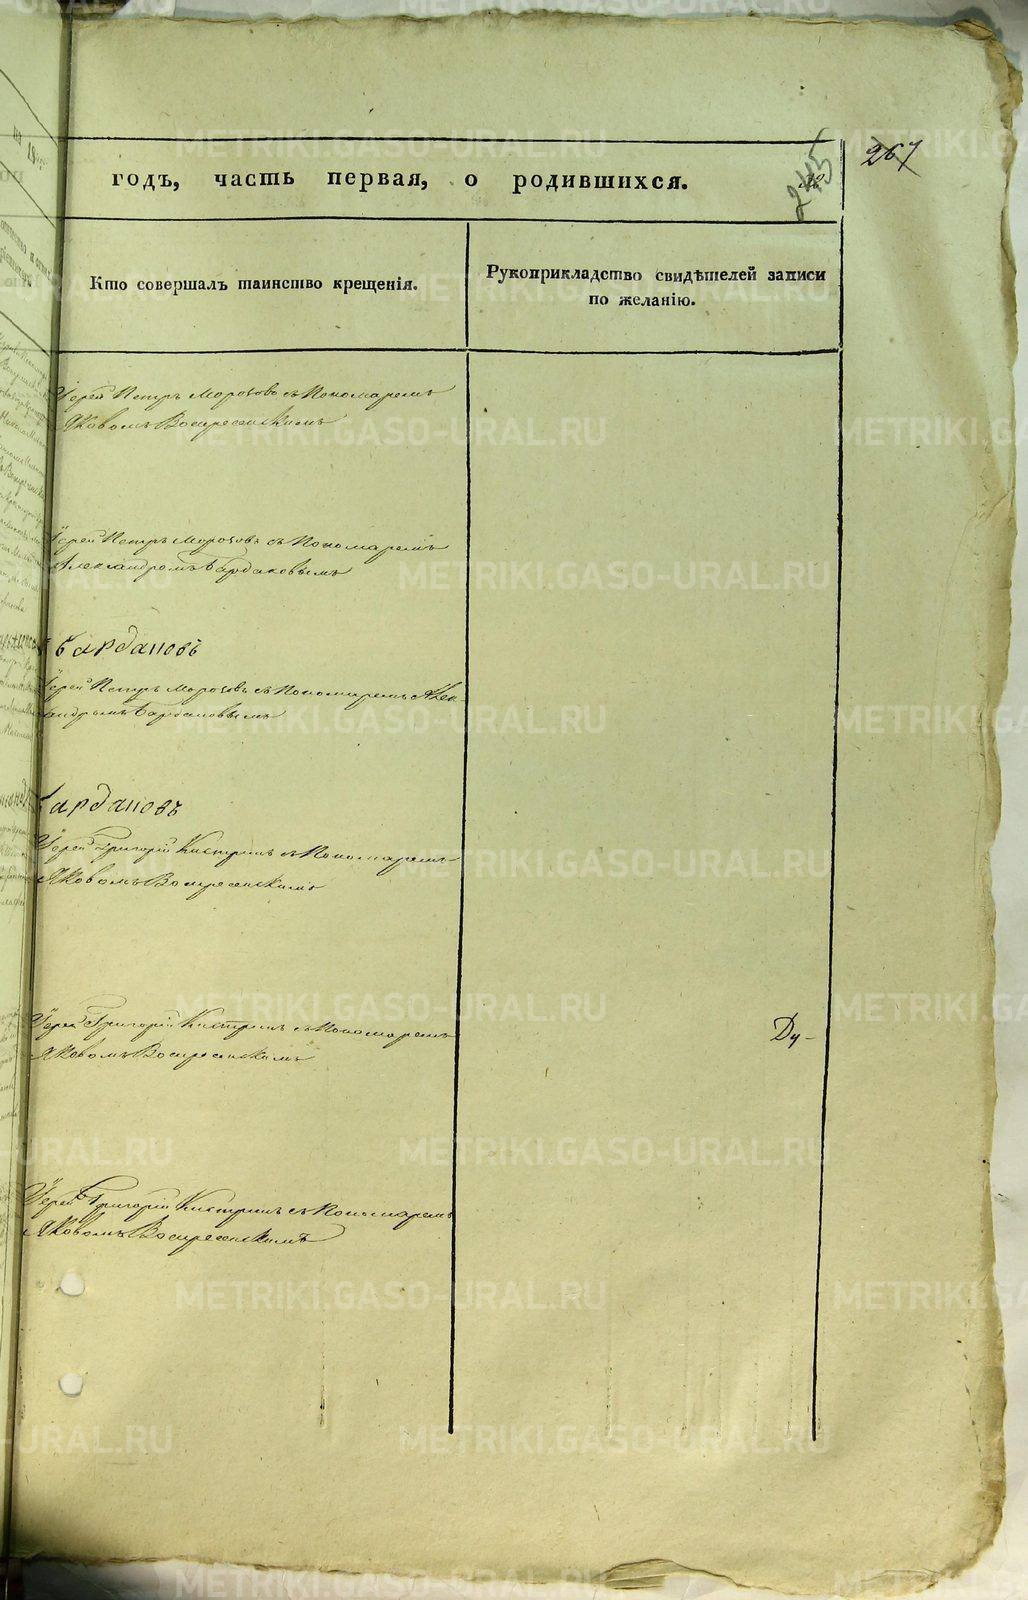 267
245
годъ, часть первая, о родившихся.
Кто совершалъ таинство крещенія.
Рукоприкладство свидѣтелей записи
по желанію.
Іерей Петръ Морозовъ съ Пономаремъ
Яковомъ Воскресенскимъ
Іерей Петръ Морозовъ съ Пономаремъ
Александромъ Бардаковымъ
Іерей Петръ Морозовъ съ Пономаремъ Алек-
сандромъ
Іерей Григорій Кистринъ съ Пономаремъ
Яковомъ Воскресенскимъ
Іерей Григорій Кистринъ съ Пономаремъ
Яковомъ Воскресенскимъ
Ду-
Іерей Григорій Кистринъ съ Пономаремъ
Яковомъ Воскресенскимъ
METRIKI.GASO-URAL.RU